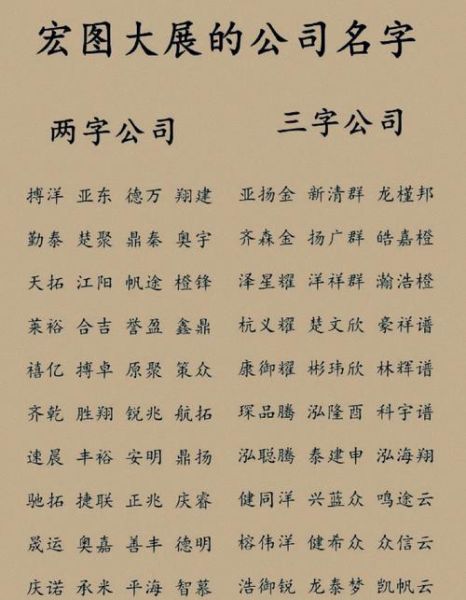 宏图大展的公司名字
两字公司 三字公司
搏洋 亚东 德万 翔建 亚扬金 新清群 龙槿邦
勤泰 楚聚 鼎秦 奥宇 齐森金 扬广群 皓嘉橙
天拓 江阳 帆途 橙锋 泽星耀 洋祥群 瀚浩橙
莱裕 合吉 誉盈 鑫鼎 杭义耀 楚文欣 豪祥谱
禧亿 搏卓 原聚 策众 康御耀 彬玮欣 林辉谱
齐乾 胜翔 锐兆 航拓 琛品腾 泓隆酉 科宇谱
速晨 丰裕 安明 鼎扬 泓聪腾 泰建申 泓海翔
驰拓 捷联 正兆 庆睿 健同洋 兴蓝众 鸣途云
晟运 奥嘉 善丰 德明 榕伟洋 健希众 众信云
庆诺 承米 平海 智慕 浩御锐 龙泰梦 凯帆云